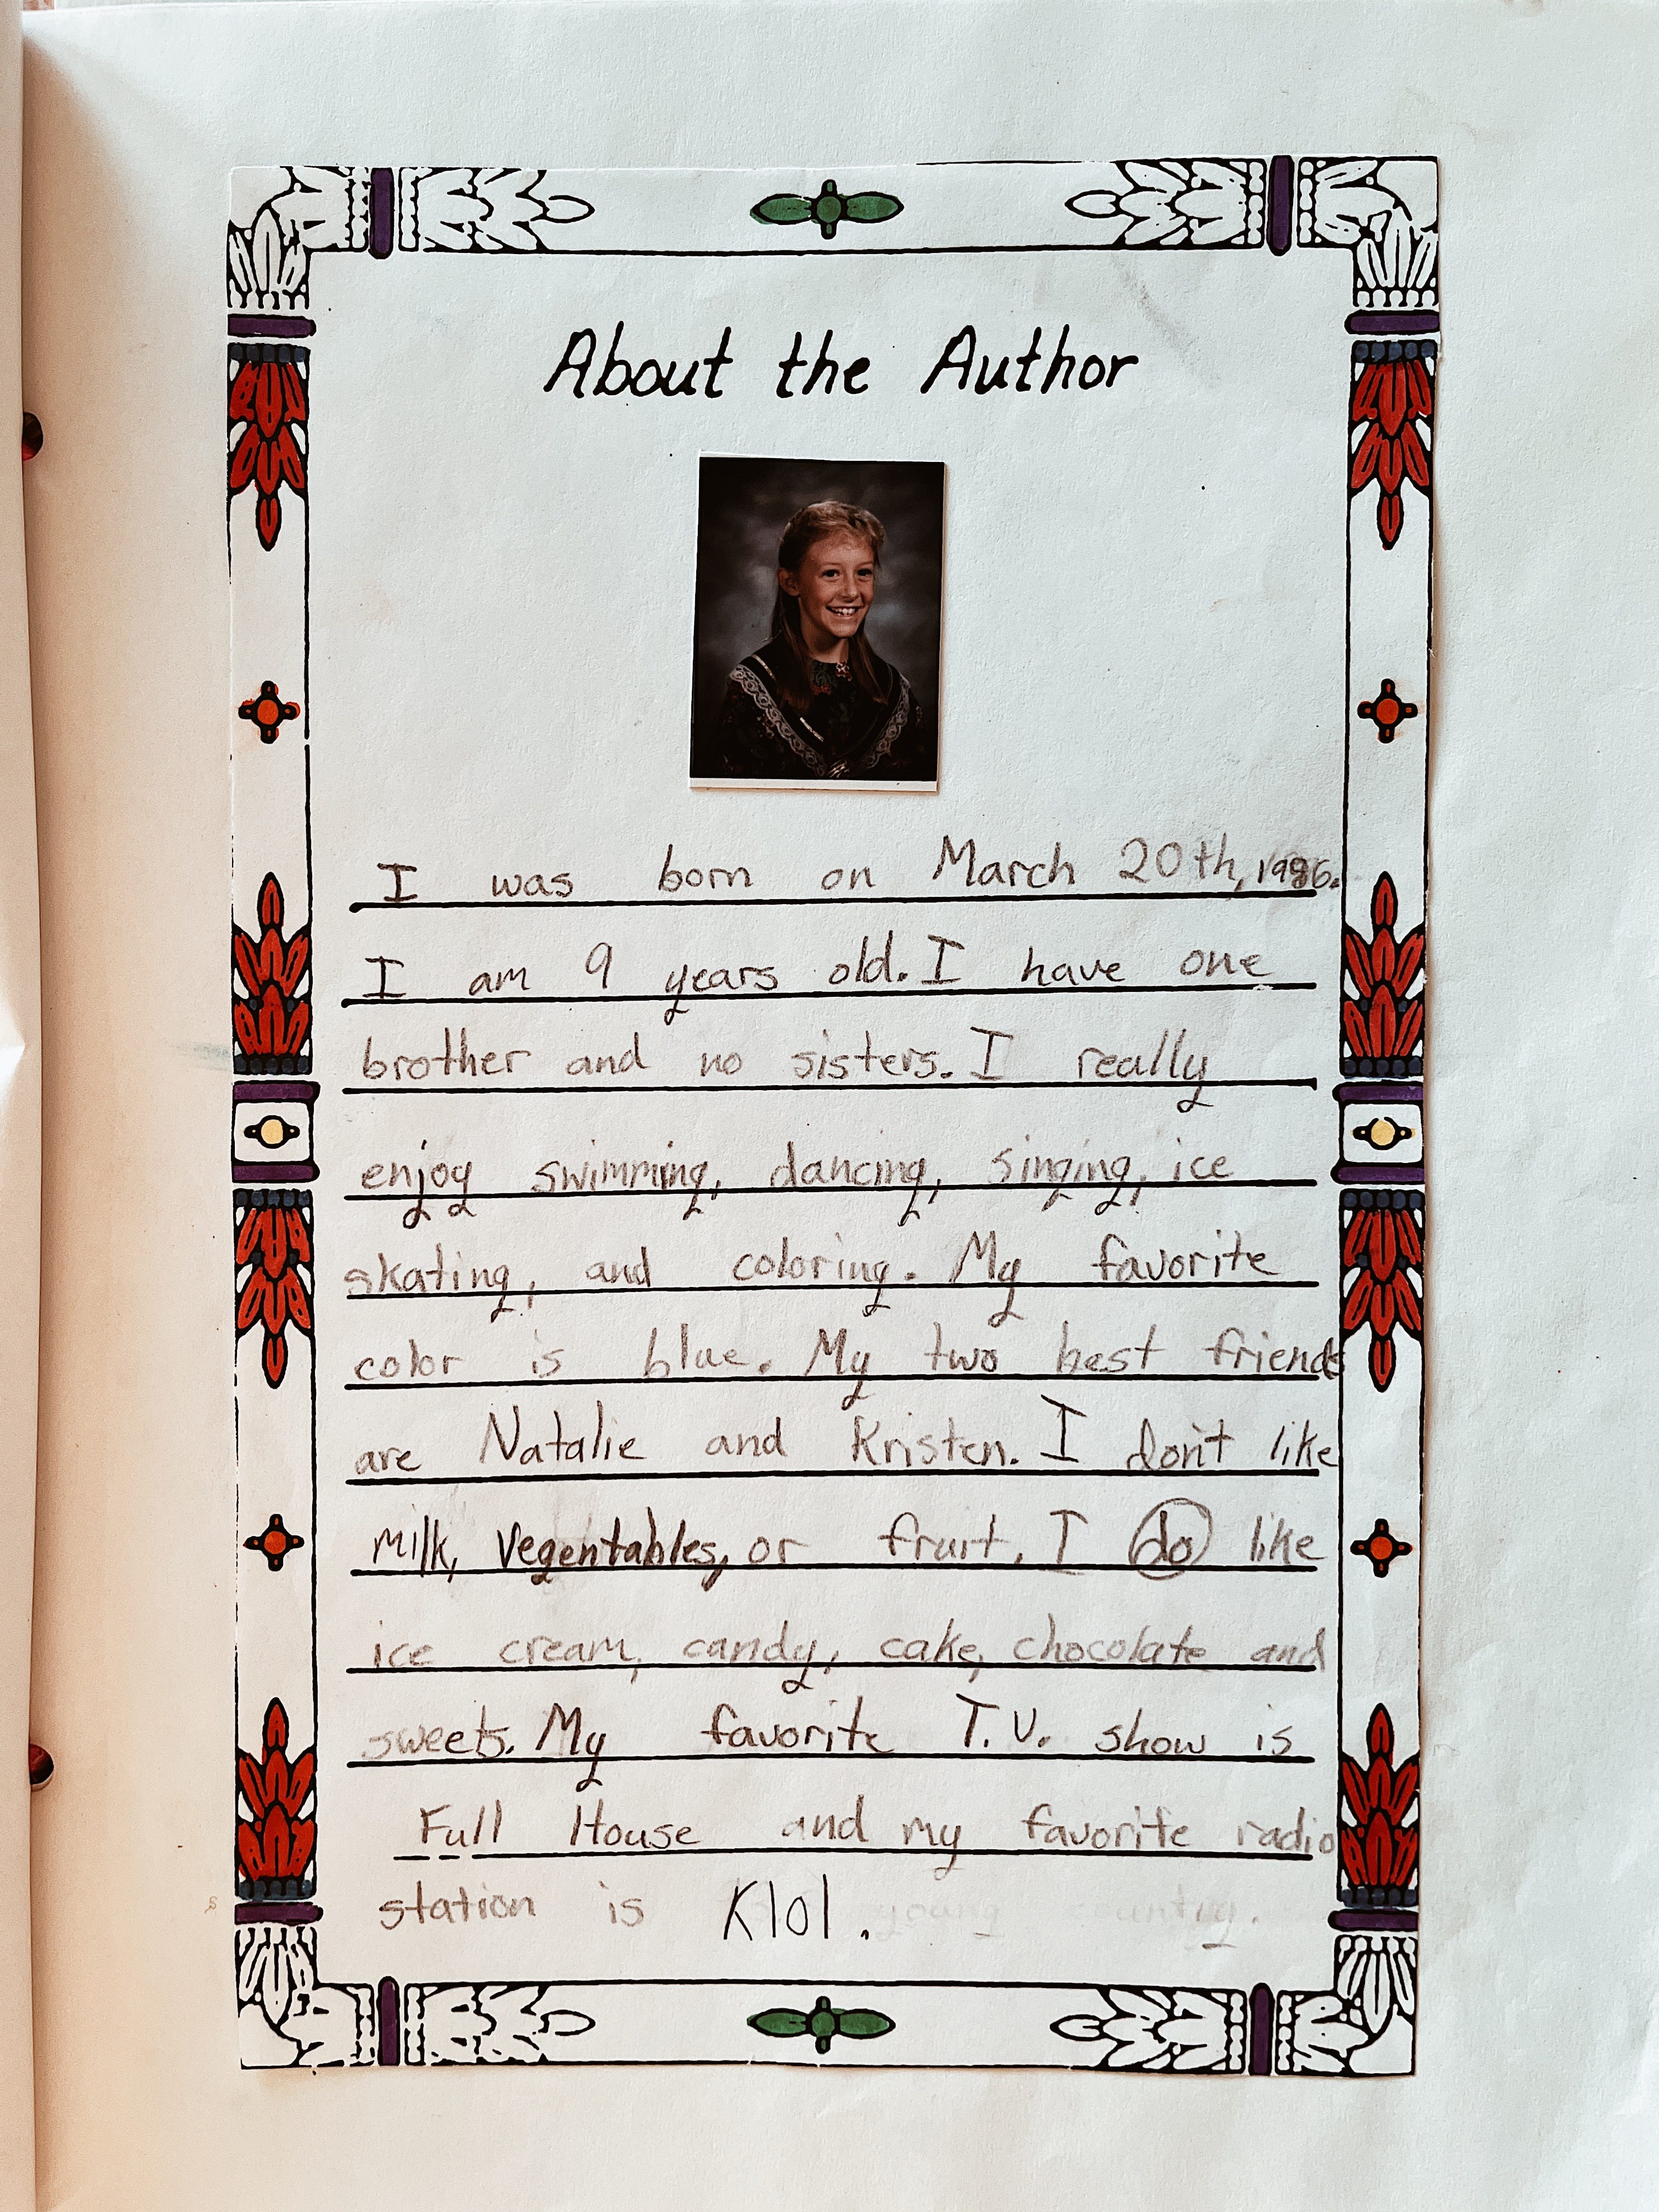 About the Author
I was born on March 20th, 1986.
I am 9 years old. I have one
brother and no sisters. I really
enjoy swimming, dancing, singing, ice
skating, and coloring. My favorite
color is blue. My two best friends
are Natalie and Kristen. I don't like
milk, vegentables, or fruit. I do like
ice cream, candy, cake, chocolate and
sweets. My favorite T.V. show is
Full House and my favorite radio
station is K101. young